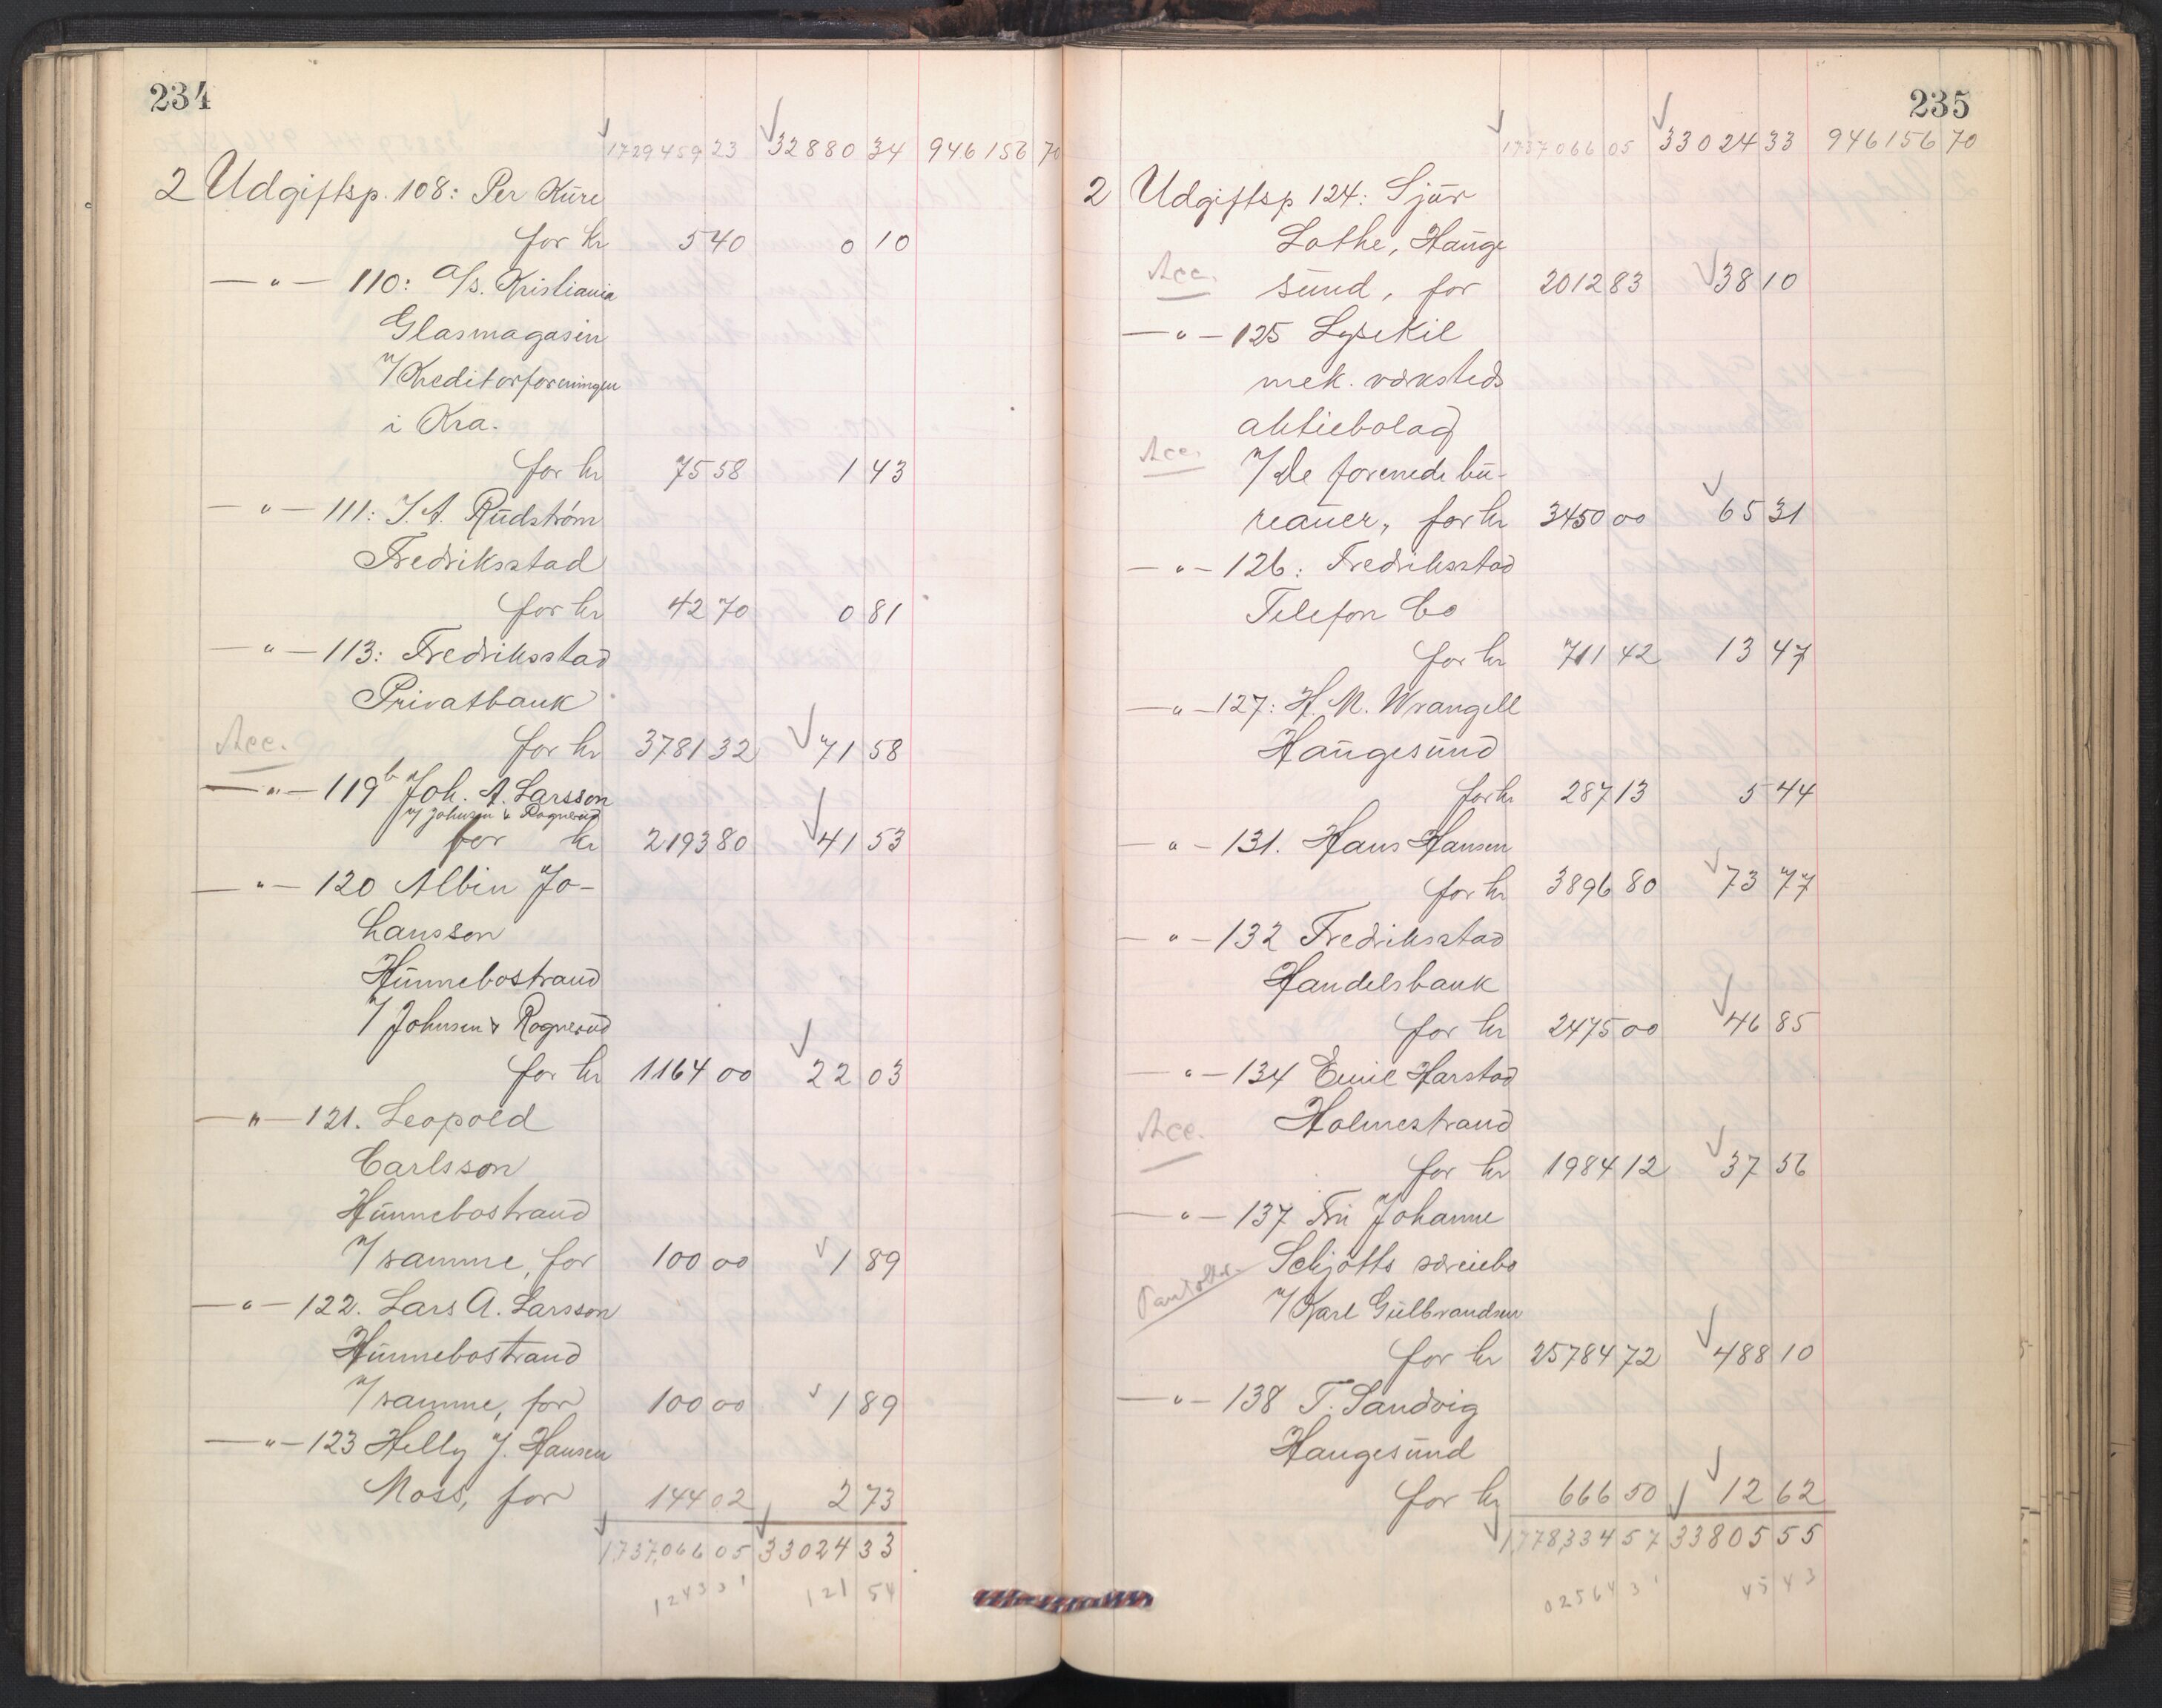 234
1729459 23 32880 34 946156 70
2 Udgiftsp. 108: Per Kure
for kr 5 40 0 10
—"— 110: A/s. Kristiania
Glasmagasin
v/ Kreditorforeningen
i Kra.
for kr 75 58 1 43
—"— 111: J. A. Rudstróm
Fredriksstad
for kr 42 70 0 81
—"— 113: Fredriksstad
Privatbank
Acc. for kr 3781 32 71 58
—"— 119b Joh. A. Larsson
v/ Johnsen & Rognerud
for kr 2193 80 41 53
—"— 120 Albin Jo-
hansson
Hunnebostrand
v/ Johnsen & Rognerud
for kr 1164 00 22 03
—"— 121. Leopold
Carlsson
Hunnebostrand
v/ samme, for 100 00 1 89
—"— 122. Lars A. Larsson
Hunnebostrand
v/ samme, for 100 00 1 89
—"— 123 Helly J. Hansen
Moss, for 144 02 2 73
1,737,066 05 33024 33
124331 121 54
235
1737066 05 33024 33 946156 70
2 Udgiftsp 124: Sjur
Lothe, Hauge
Acc. sund, for 2012 83 38 10
—"— 125 Lysekil
mek. værksteds
aktiebolag
Acc. v/ De forenede bu-
reauer, for kr 3450 00 65 31
—"— 126: Fredriksstad
Telefon Co
for kr 711 42 13 47
—"— 127: H. M. Wrangell
Haugesund
for kr 287 13 5 44
—"— 131. Hans Hansen
for kr 3896 80 73 77
—"— 132 Fredriksstad
Handelsbank
for kr 2475 00 46 85
—"— 134 Emil Harstad
Acc. Holmestrand
for kr 1984 12 37 56
—"— 137 Fru Johanne
Schjøtts særeiebo
v/ Karl Gulbrandsen
for kr 25784 72 488 10
—"— 138 T. Sandvig
Haugesund
for kr 666 50 12 62
1,778,334 57 33805 55
025643 45 43